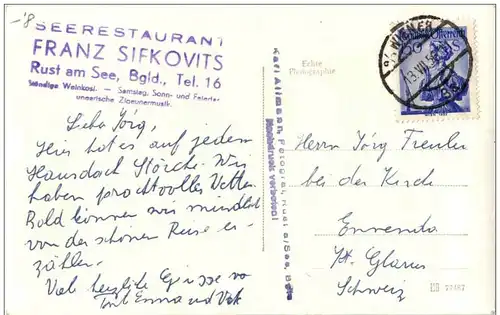 SEERESTAURANT
FRANZ SIFKOVITS
Rust am See, Bgld., Tel. 16
Ständige Weinkost. - Samstag, Sonn- und Feiertag
ungarische Zigeunermusik.
Lieber Jörg,
Hier hat es auf jedem
Hausdach Störche. Wir
haben prachtvolles Wetter.
Bald können wir mündlich
von der schönen Reise er-
zählen.
Viele herzliche Grüsse von
Emma und
Echte
Photographie
Karl Altmann, Fotograf, Rust a/See, Bgld
Nachdruck verboten!
WIEN
Österreich
Herrn Jörg Freuler
bei der Kirche
Ennenda
Kt. Glarus
Schweiz